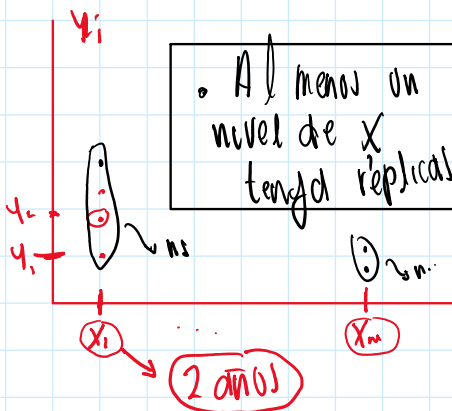 yi
• Al menos un
nivel de X
tenga réplicas
y₁
x₁
...
xₘ
2 años